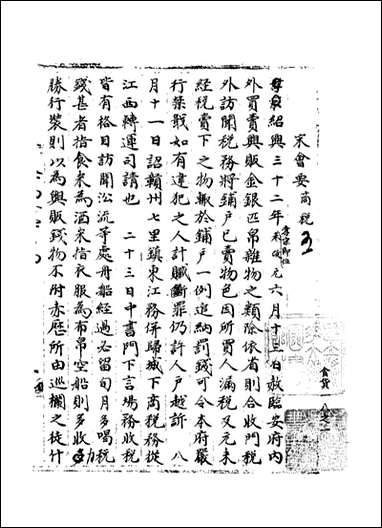 宋會要 商稅 五
孝宗紹興三十二年未改元六月十三日赦臨安府内
外買賣興販金銀匹帛雜物之類除依省則合收門稅
外訪聞稅務將鋪戶已賣物色因所買人漏稅又元未
經稅賣下之物輒於鋪戶一例追納罰錢可令本府嚴
行禁戢如有違犯之人計贓斷罪仍許人戶越訴 八
月十一日詔贛州七里鎮東江務併歸城下商稅務從
江西轉運司請也 二十三日中書門下言場務收稅
皆有格日訪聞㳂流等處舟船經過必留旬月多喝稅
錢甚者指食米為酒米指衣服為布帛空船則多收力
勝行裝則以為興販錢物不附赤曆所由巡欄之徒什
食貨